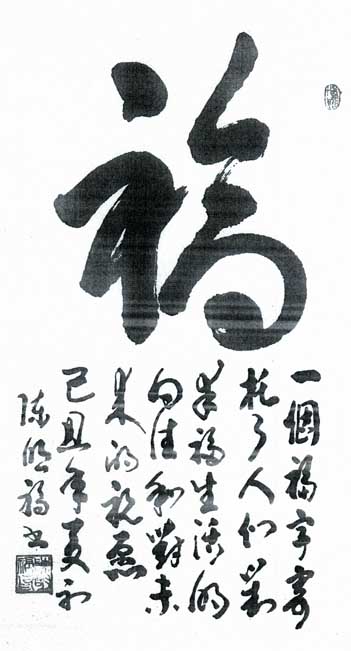 福
一個福字寄
托了人们對
幸福生活的
向往和對未
来的祝愿
己丑年夏初
陈福书